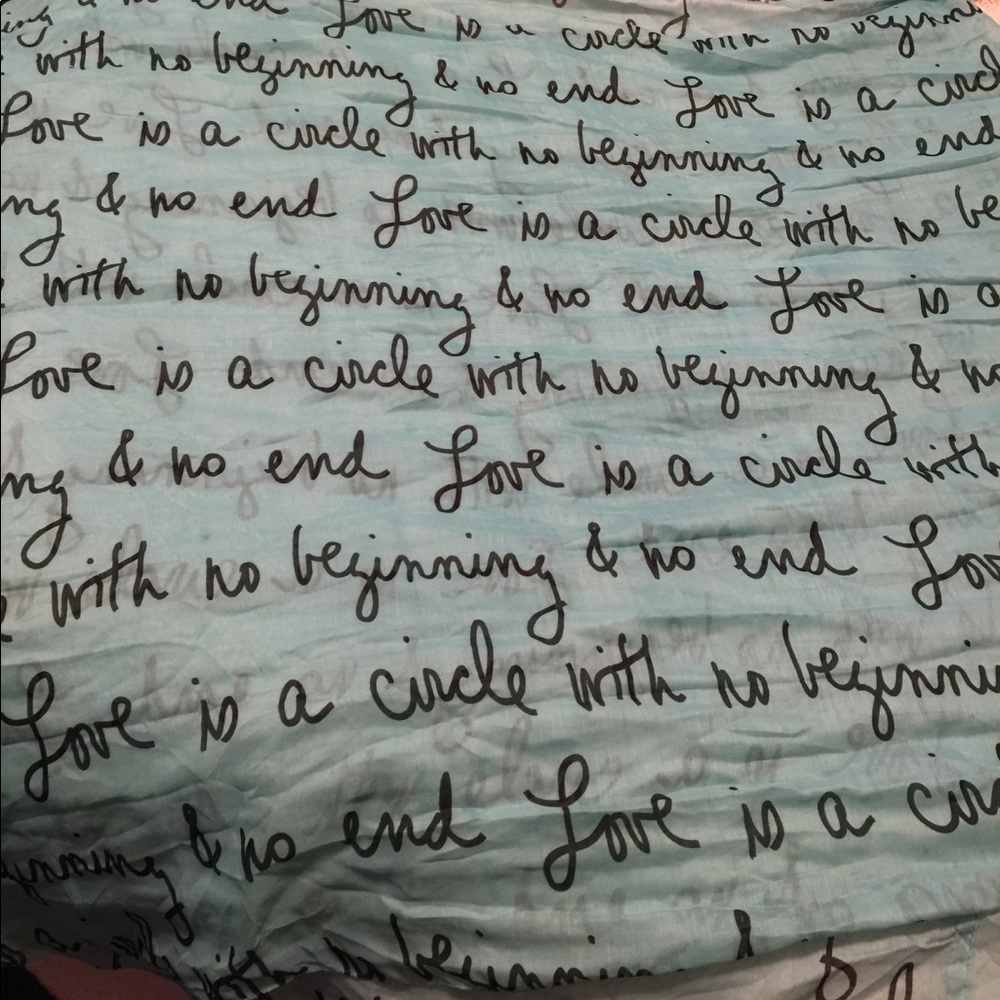 end Love is a circle with no
with no beginning & no end Love is a
Love is a circle with no beginning & no end
& no end Love is a circle with no
with no beginning & no end Love is a
Love is a circle with no beginning & no
& no end Love is a circle with
with no beginning & no end
Love is a circle with no
& no end Love is a
with no